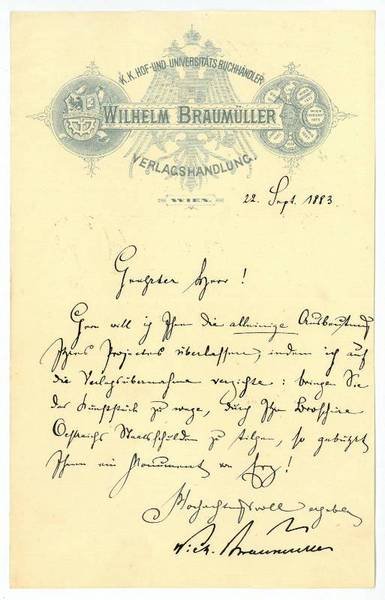 K. K. HOF- UND UNIVERSITÄTS BUCHHÄNDLER
WILHELM BRAUMÜLLER
VERLAGSHANDLUNG.
WIEN.
22. Sept. 1883.
Geehrter Herr!
Gern will ich Ihnen die alleinige Ausbeutung
Ihres Projectes überlassen, indem ich auf
die Verlagsübernahme verzichte: bringen Sie
das Kunststück zu wege, durch Ihre Broschüre
Oestreichs Staatsschulden zu tilgen, so gebührt
Ihnen ein Monument von Erz!
Hochachtungsvoll ergeben
Wilh. Braumüller